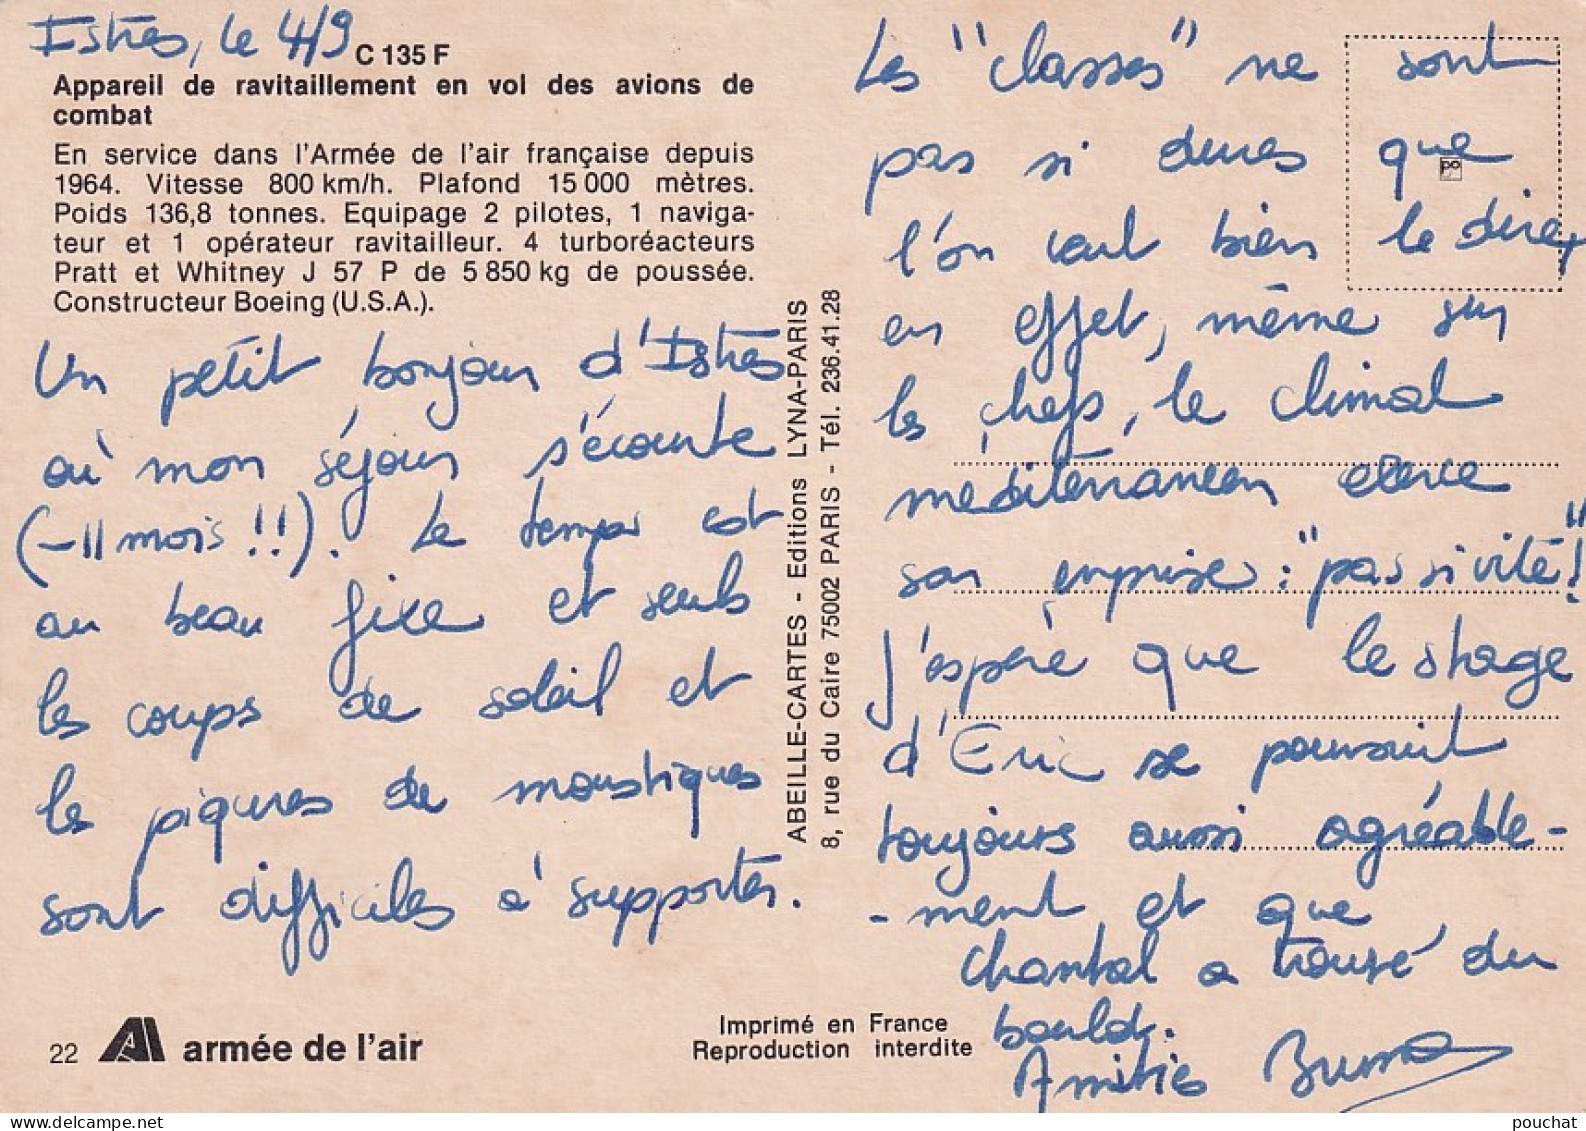 Istres, le 4/9
C 135 F
Appareil de ravitaillement en vol des avions de
combat
En service dans l'Armée de l'air française depuis
1964. Vitesse 800 km/h. Plafond 15 000 mètres.
Poids 136,8 tonnes. Equipage 2 pilotes, 1 naviga-
teur et 1 opérateur ravitailleur. 4 turboréacteurs
Pratt et Whitney J 57 P de 5 850 kg de poussée.
Constructeur Boeing (U.S.A.).
Un petit bonjour d'Istres
où mon séjour s'écourte
(-11 mois !!). Le temps est
au beau fixe et seuls
les coups de soleil et
les piqures de moustiques
sont difficiles à supporter.
22 armée de l'air
Imprimé en France
Reproduction interdite
ABEILLE-CARTES - Editions LYNA-PARIS
8, rue du Caire 75002 PARIS - Tél. 236.41.28
Les "classes" ne sont
pas si dures que
l'on veut bien le dire,
en effet, même sur
les chefs, le climat
méditerranéen exerce
son emprise : "passivité"!
J'espère que le stage
d'Eric se poursuit
toujours aussi agréable-
-ment et que
Chantal a trouvé du
boulot.
Amitiés Bruno
po
pouchat